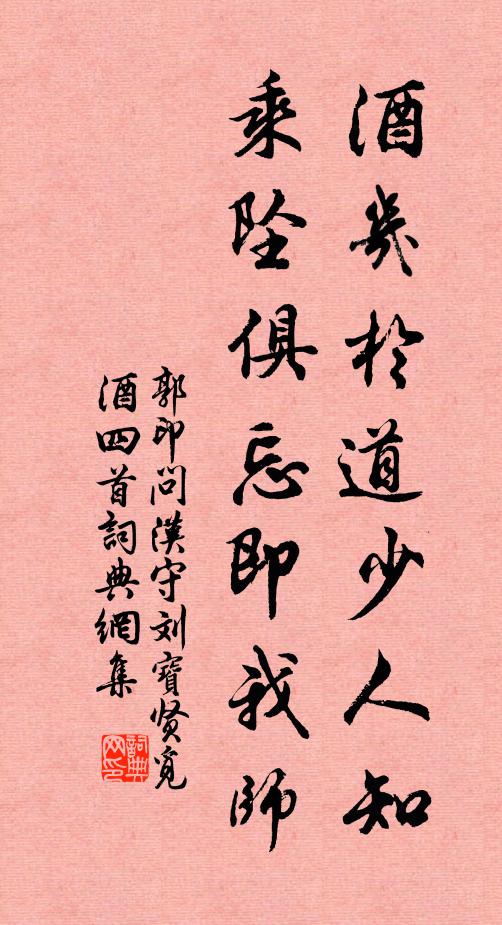 酒幾於道少人知
乘坠俱忘即我師
郭印問漢守刘寶贤覓
酒四首詞典網集
詞典
网印